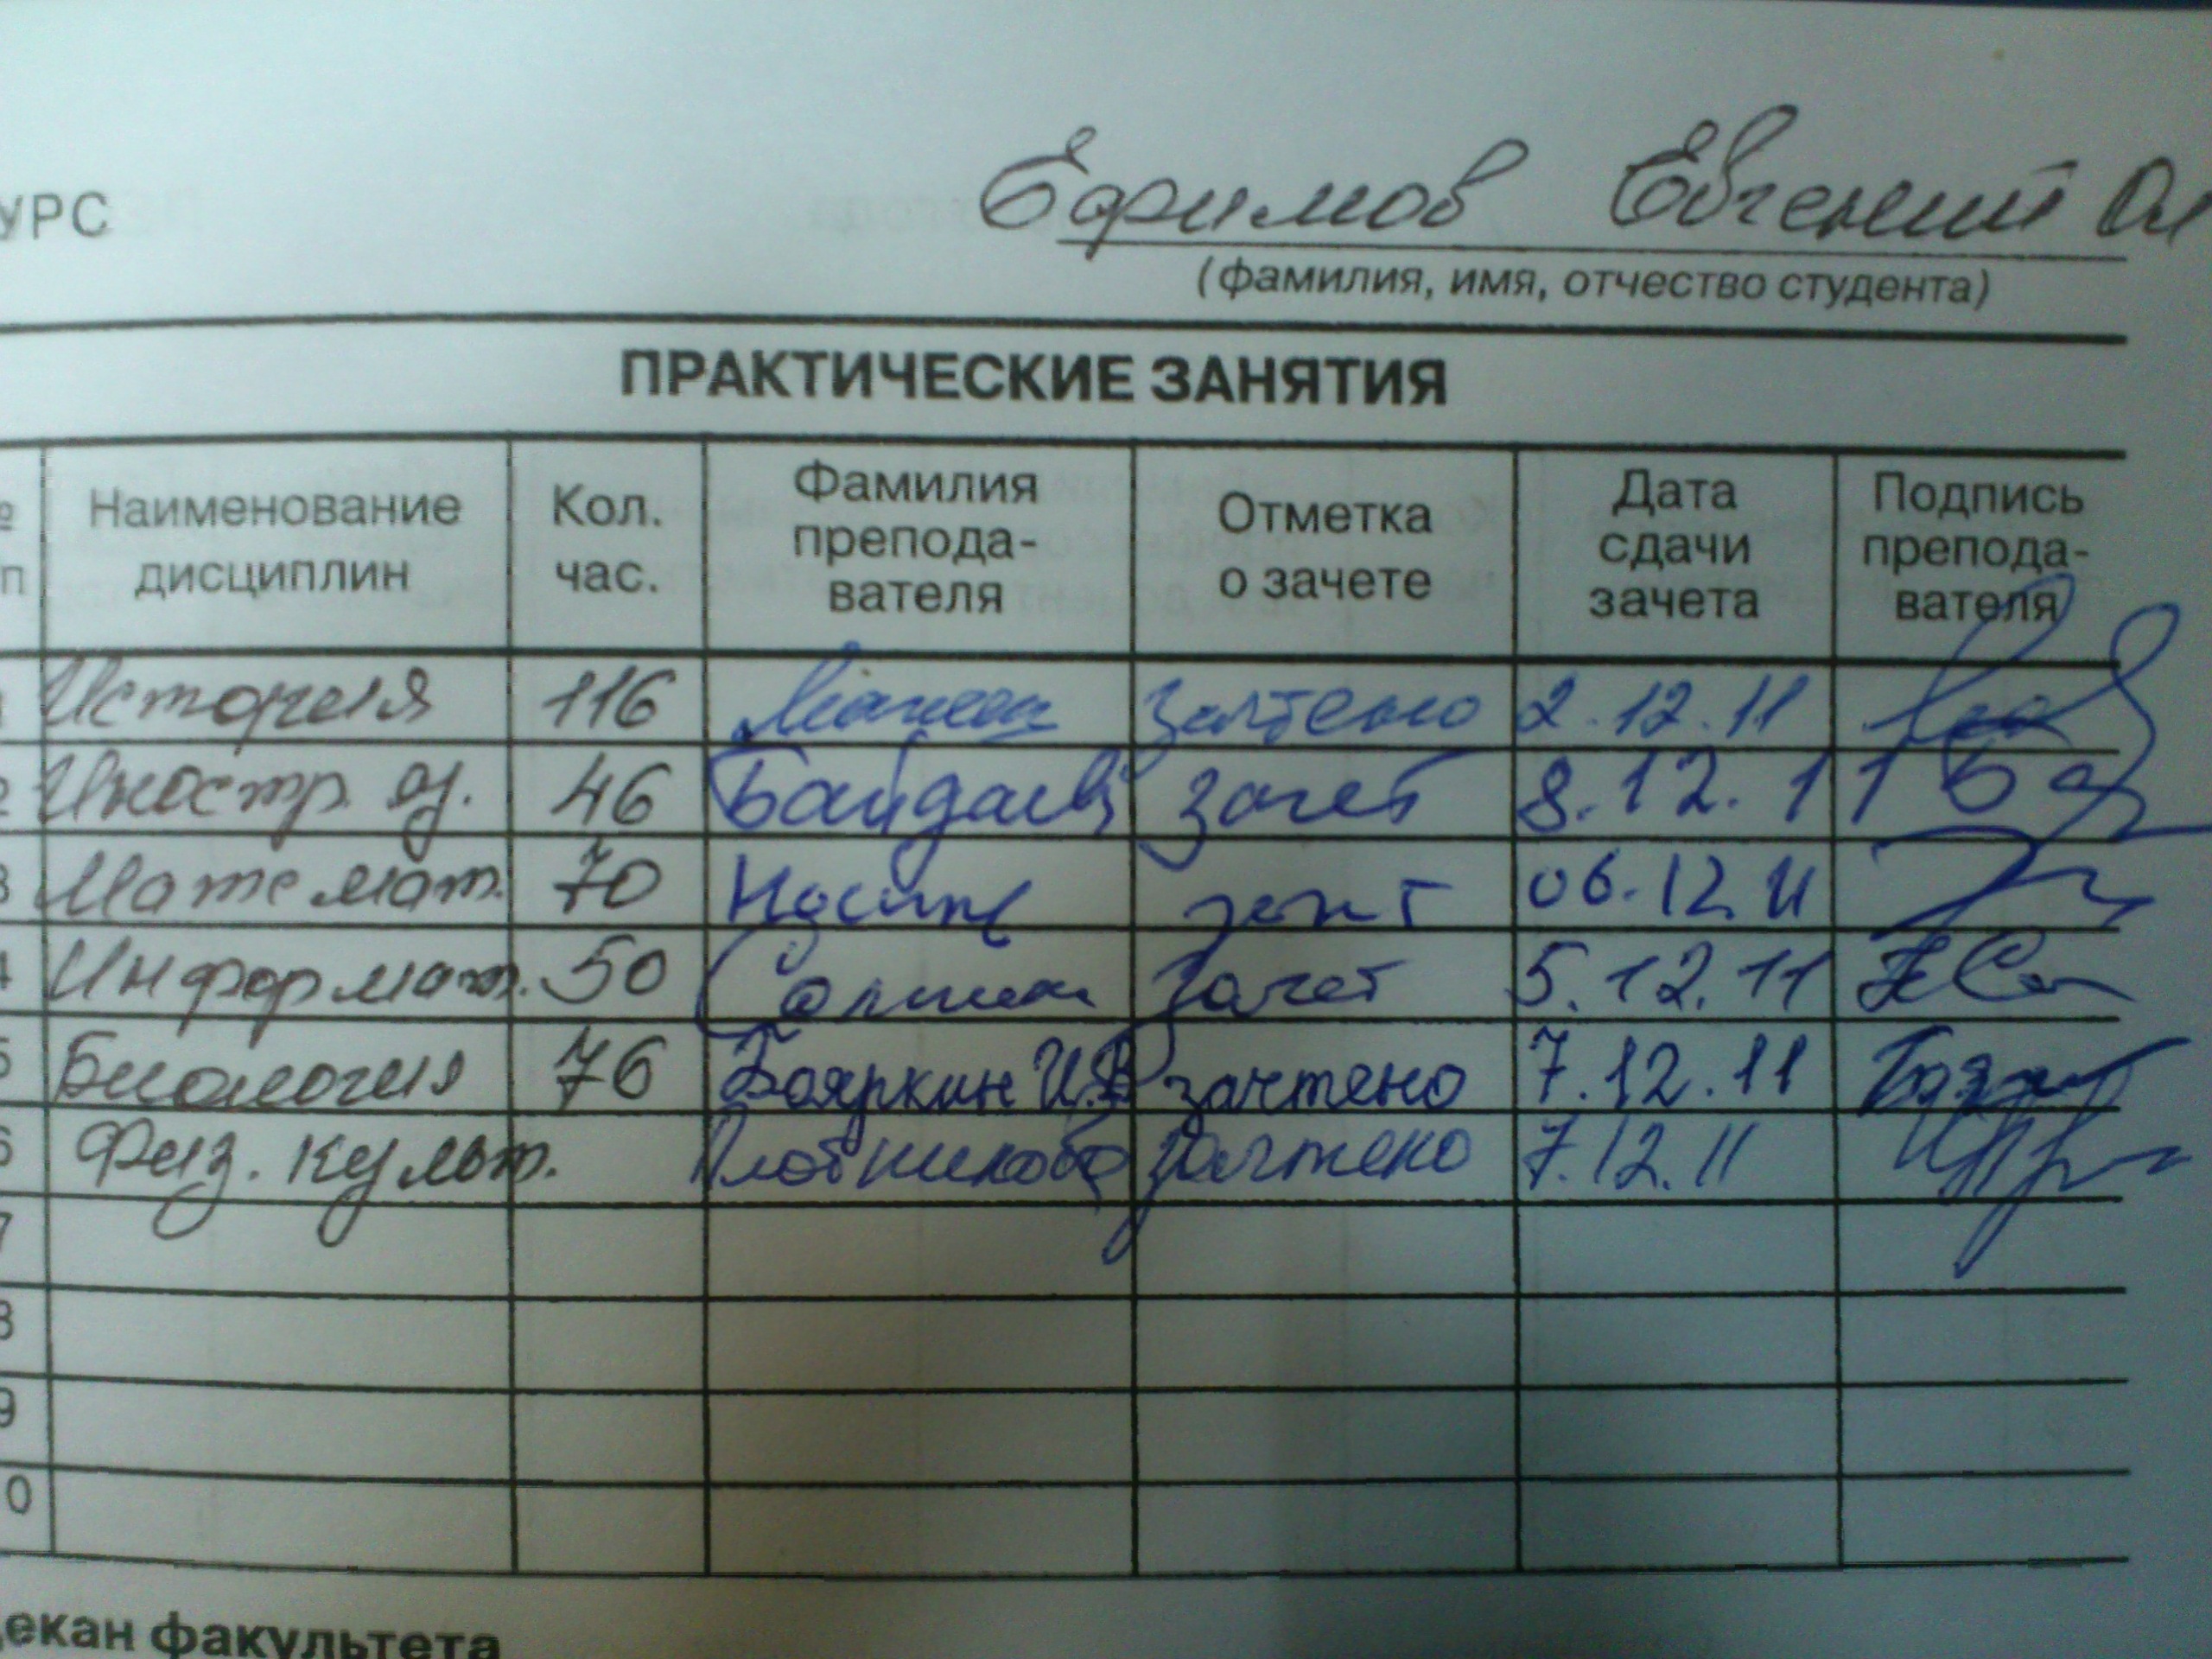 УРС Ефимов Евгений Ол
(фамилия, имя, отчество студента)
ПРАКТИЧЕСКИЕ ЗАНЯТИЯ
№ п Наименование дисциплин Кол. час. Фамилия препода-вателя Отметка о зачете Дата сдачи зачета Подпись препода-вателя
1 История 116 зачтено 2.12.11
2 Иностр. яз. 46 зачет 8.12.11
3 Математ. 70 зачет 06.12.11
4 Информат. 50 зачет 5.12.11
5 Биология 76 Бояркин И.В зачтено 7.12.11
6 Физ. культ. Плотникова зачтено 7.12.11
7
8
9
0
декан факультета